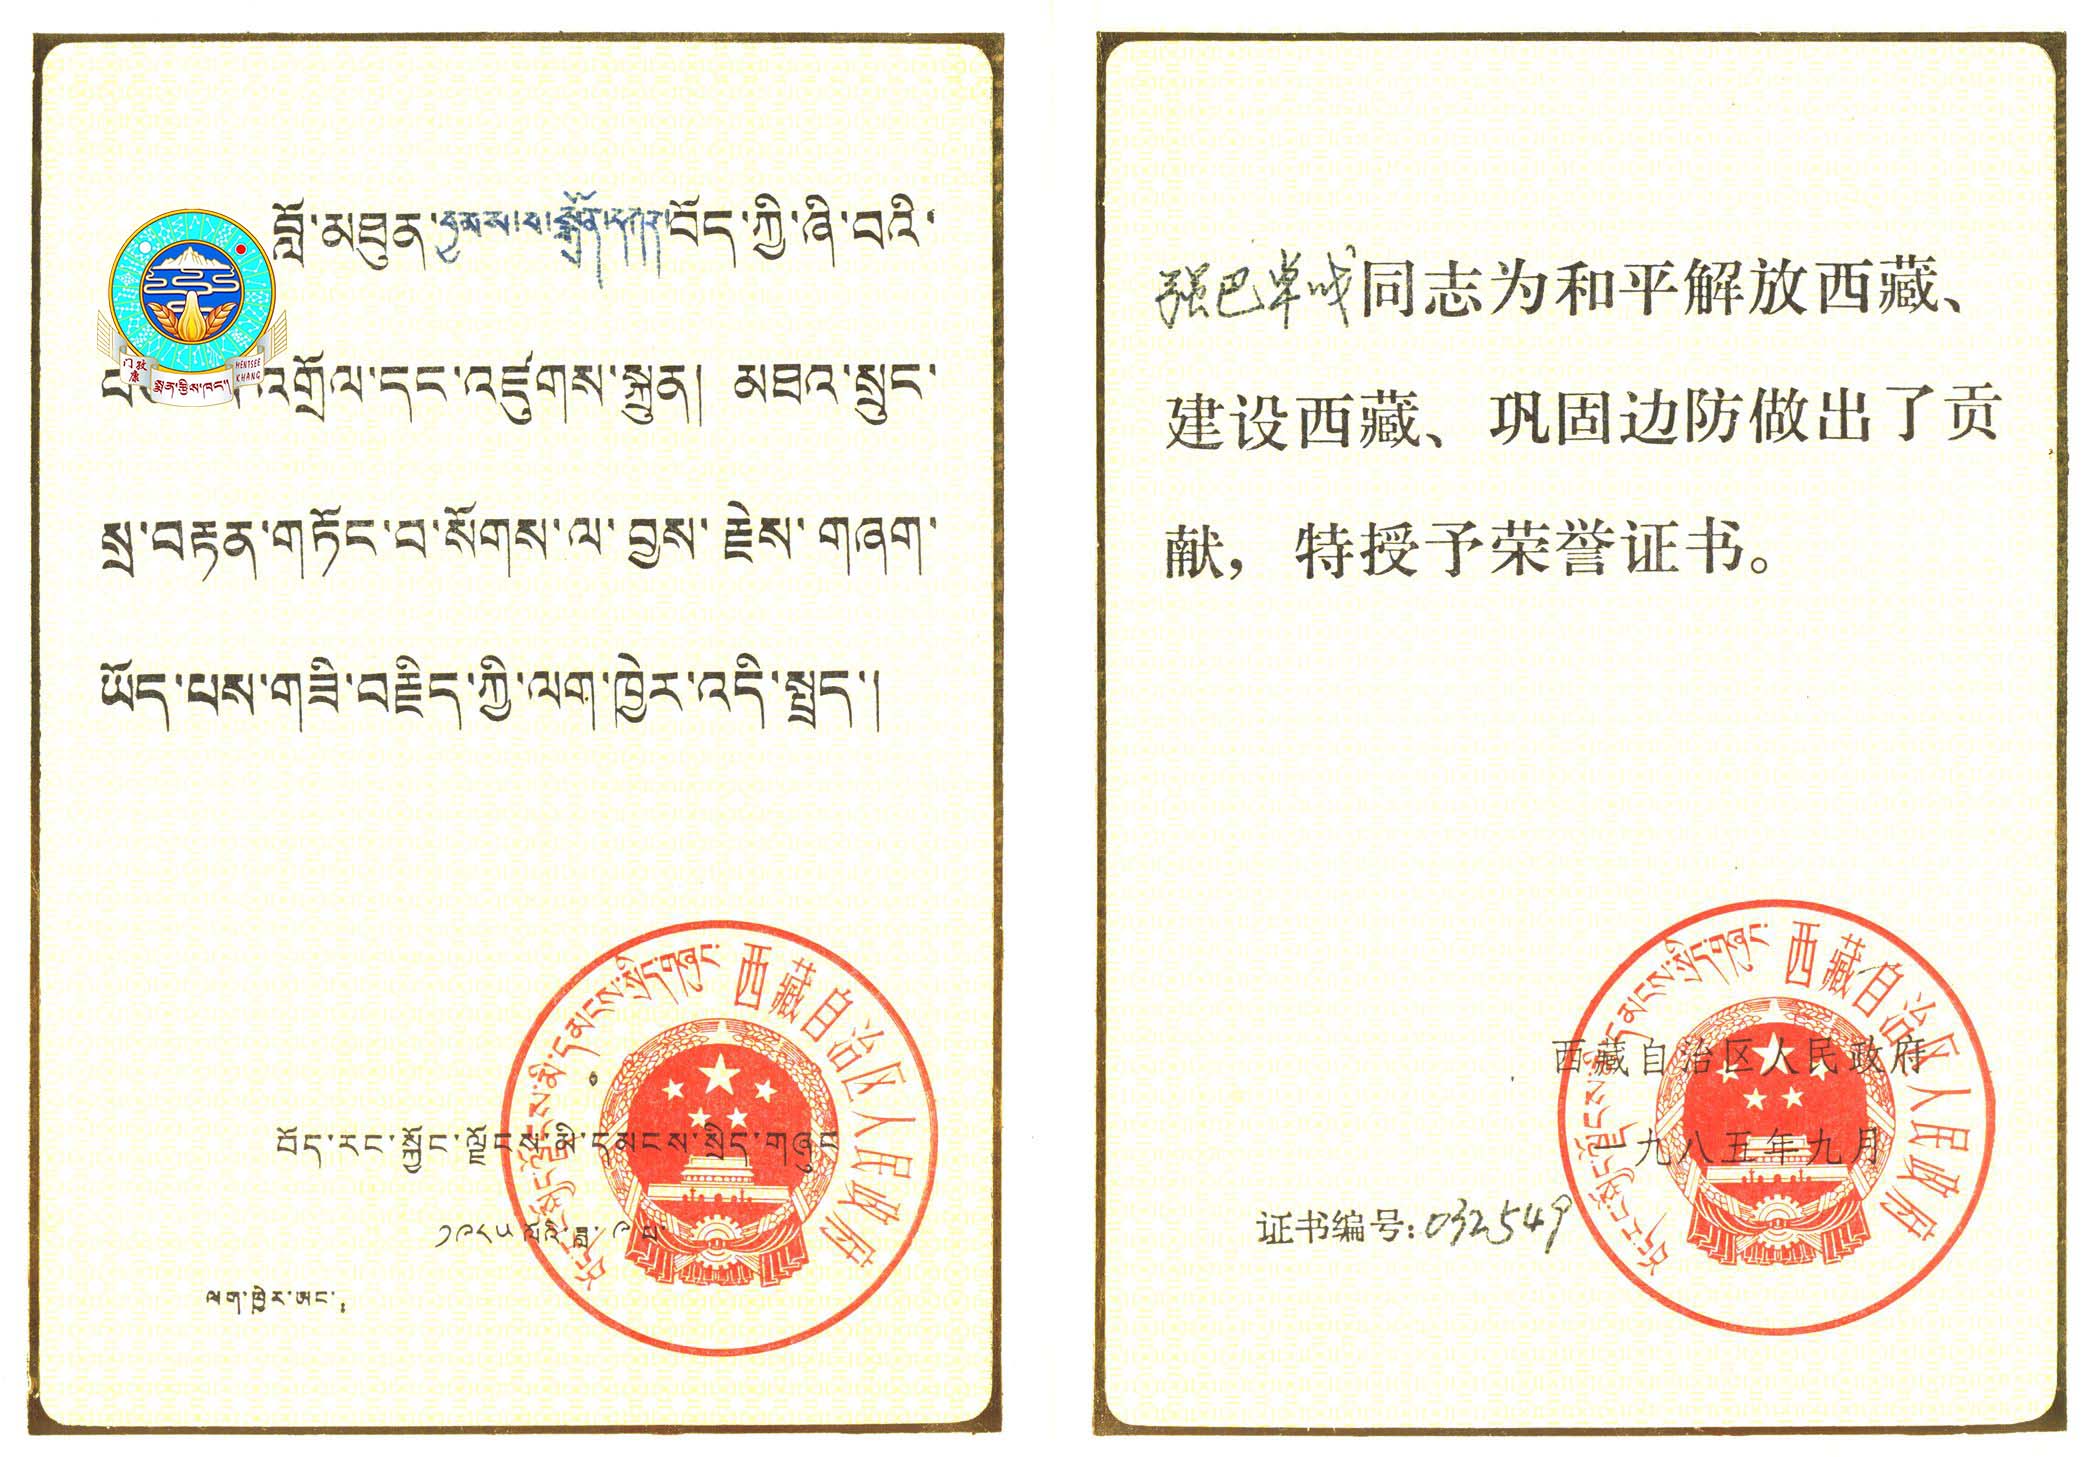 བློ་མཐུན་བྱམས་པ་སྒྲོན་དཀར་བོད་ཀྱི་ཞི་བའི་
བཅིངས་འགྲོལ་དང་འཛུགས་སྐྲུན། མཐའ་སྲུང་
སྲ་བརྟན་གཏོང་བ་སོགས་ལ་བྱས་རྗེས་གཞག་
ཡོད་པས་གཟི་བརྗིད་ཀྱི་ལག་ཁྱེར་འདི་སྤྲད།
བོད་རང་སྐྱོང་ལྗོངས་མི་དམངས་སྲིད་གཞུང་
༡༩༨༥ལོའི་ཟླ་༩པ་
ལག་ཁྱེར་ཨང་:
门孜康
སྨན་རྩིས་ཁང་།།
MENTSEE KHANG
བོད་རང་སྐྱོང་ལྗོངས་མི་དམངས་སྲིད་གཞུང་ 西藏自治区人民政府
强巴卓戈同志为和平解放西藏、
建设西藏、巩固边防做出了贡
献，特授予荣誉证书。
西藏自治区人民政府
一九八五年九月
证书编号:032549
བོད་རང་སྐྱོང་ལྗོངས་མི་དམངས་སྲིད་གཞུང་ 西藏自治区人民政府